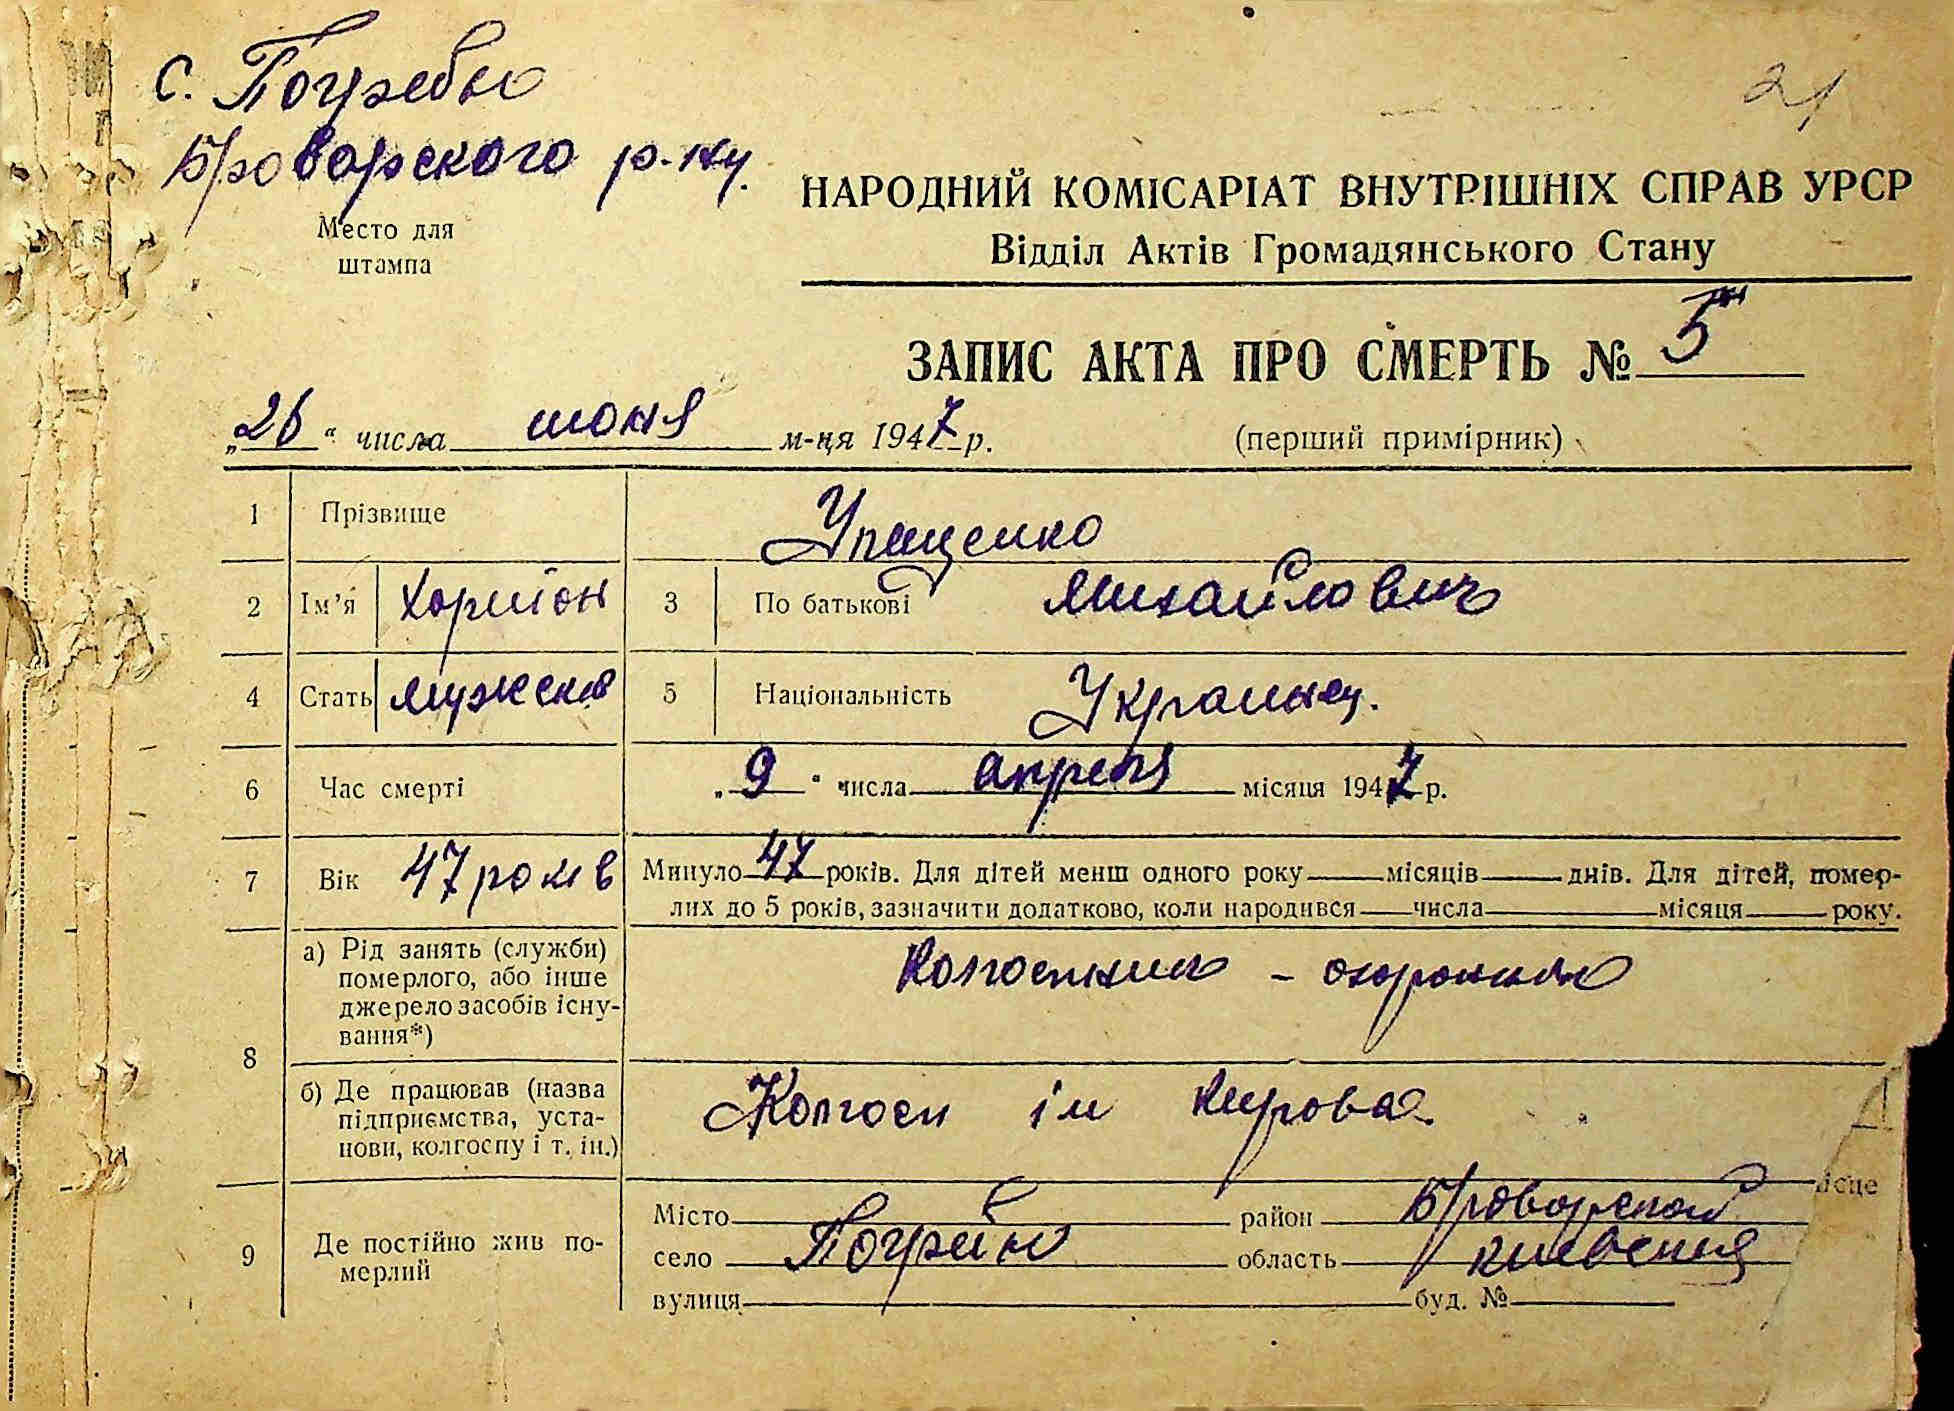 21
с. Погребы
Броварского р-ну.
Место для
штампа
НАРОДНИЙ КОМІСАРІАТ ВНУТРІШНІХ СПРАВ УРСР
Відділ Актів Громадянського Стану
ЗАПИС АКТА ПРО СМЕРТЬ № 5
„26“ числа июня м-ця 1947 р. (перший примірник)
1 Прізвище Ипащенко
2 Ім’я 3 По батькові Михайлович
4 Стать мужской 5 Національність Украинец.
6 Час смерті „9“ числа апреля місяця 1947 р.
7 Вік 47 років Минуло 47 років. Для дітей менш одного року місяців днів. Для дітей, помер-
лих до 5 років, зазначити додатково, коли народився числа місяця року.
8 а) Рід занять (служби)
померлого, або інше
джерело засобів існу-
вання*)
Колгоспник - охоронник
б) Де працював (назва
підприємства, уста-
нови, колгоспу і т. ін.)
Колгосп ім Кирова
ісце
9 Де постійно жив по-
мерлий
Місто район Броварской
село Погреби область Киевская
вулиця буд. №